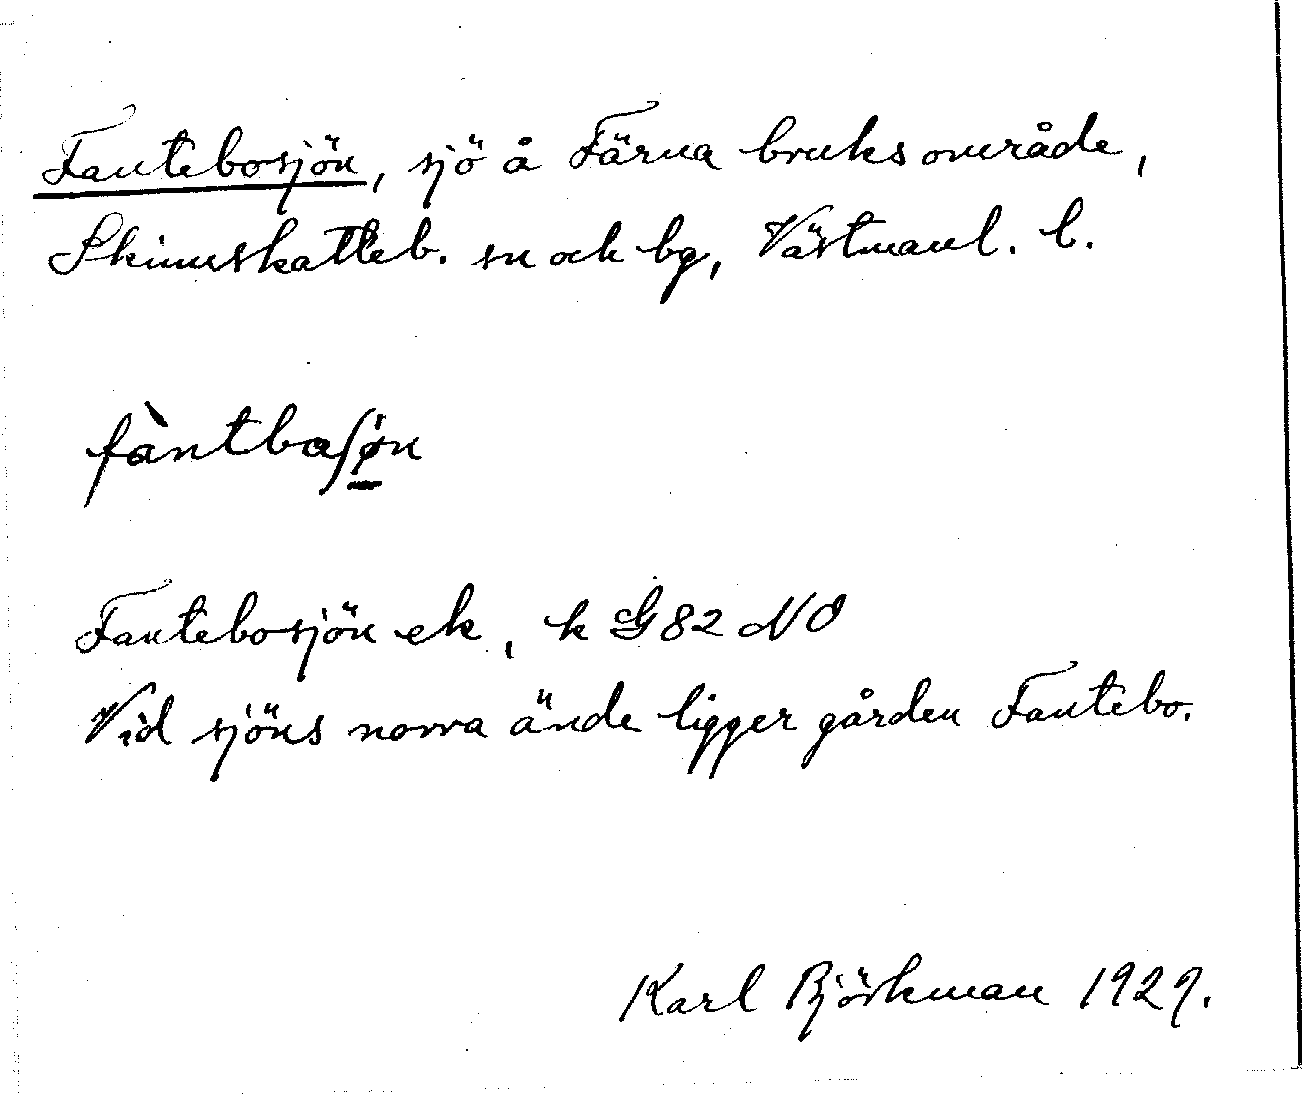 Fantebosjön, sjö å Färna bruksområde,
Skinnskatteb. sn och bg, Västmanl. l.
fàntbaʃøn
Fantebosjön ek, k G 82 NO
Vid sjöns norra ände ligger gården Fantebo.
Karl Björkman 1929.